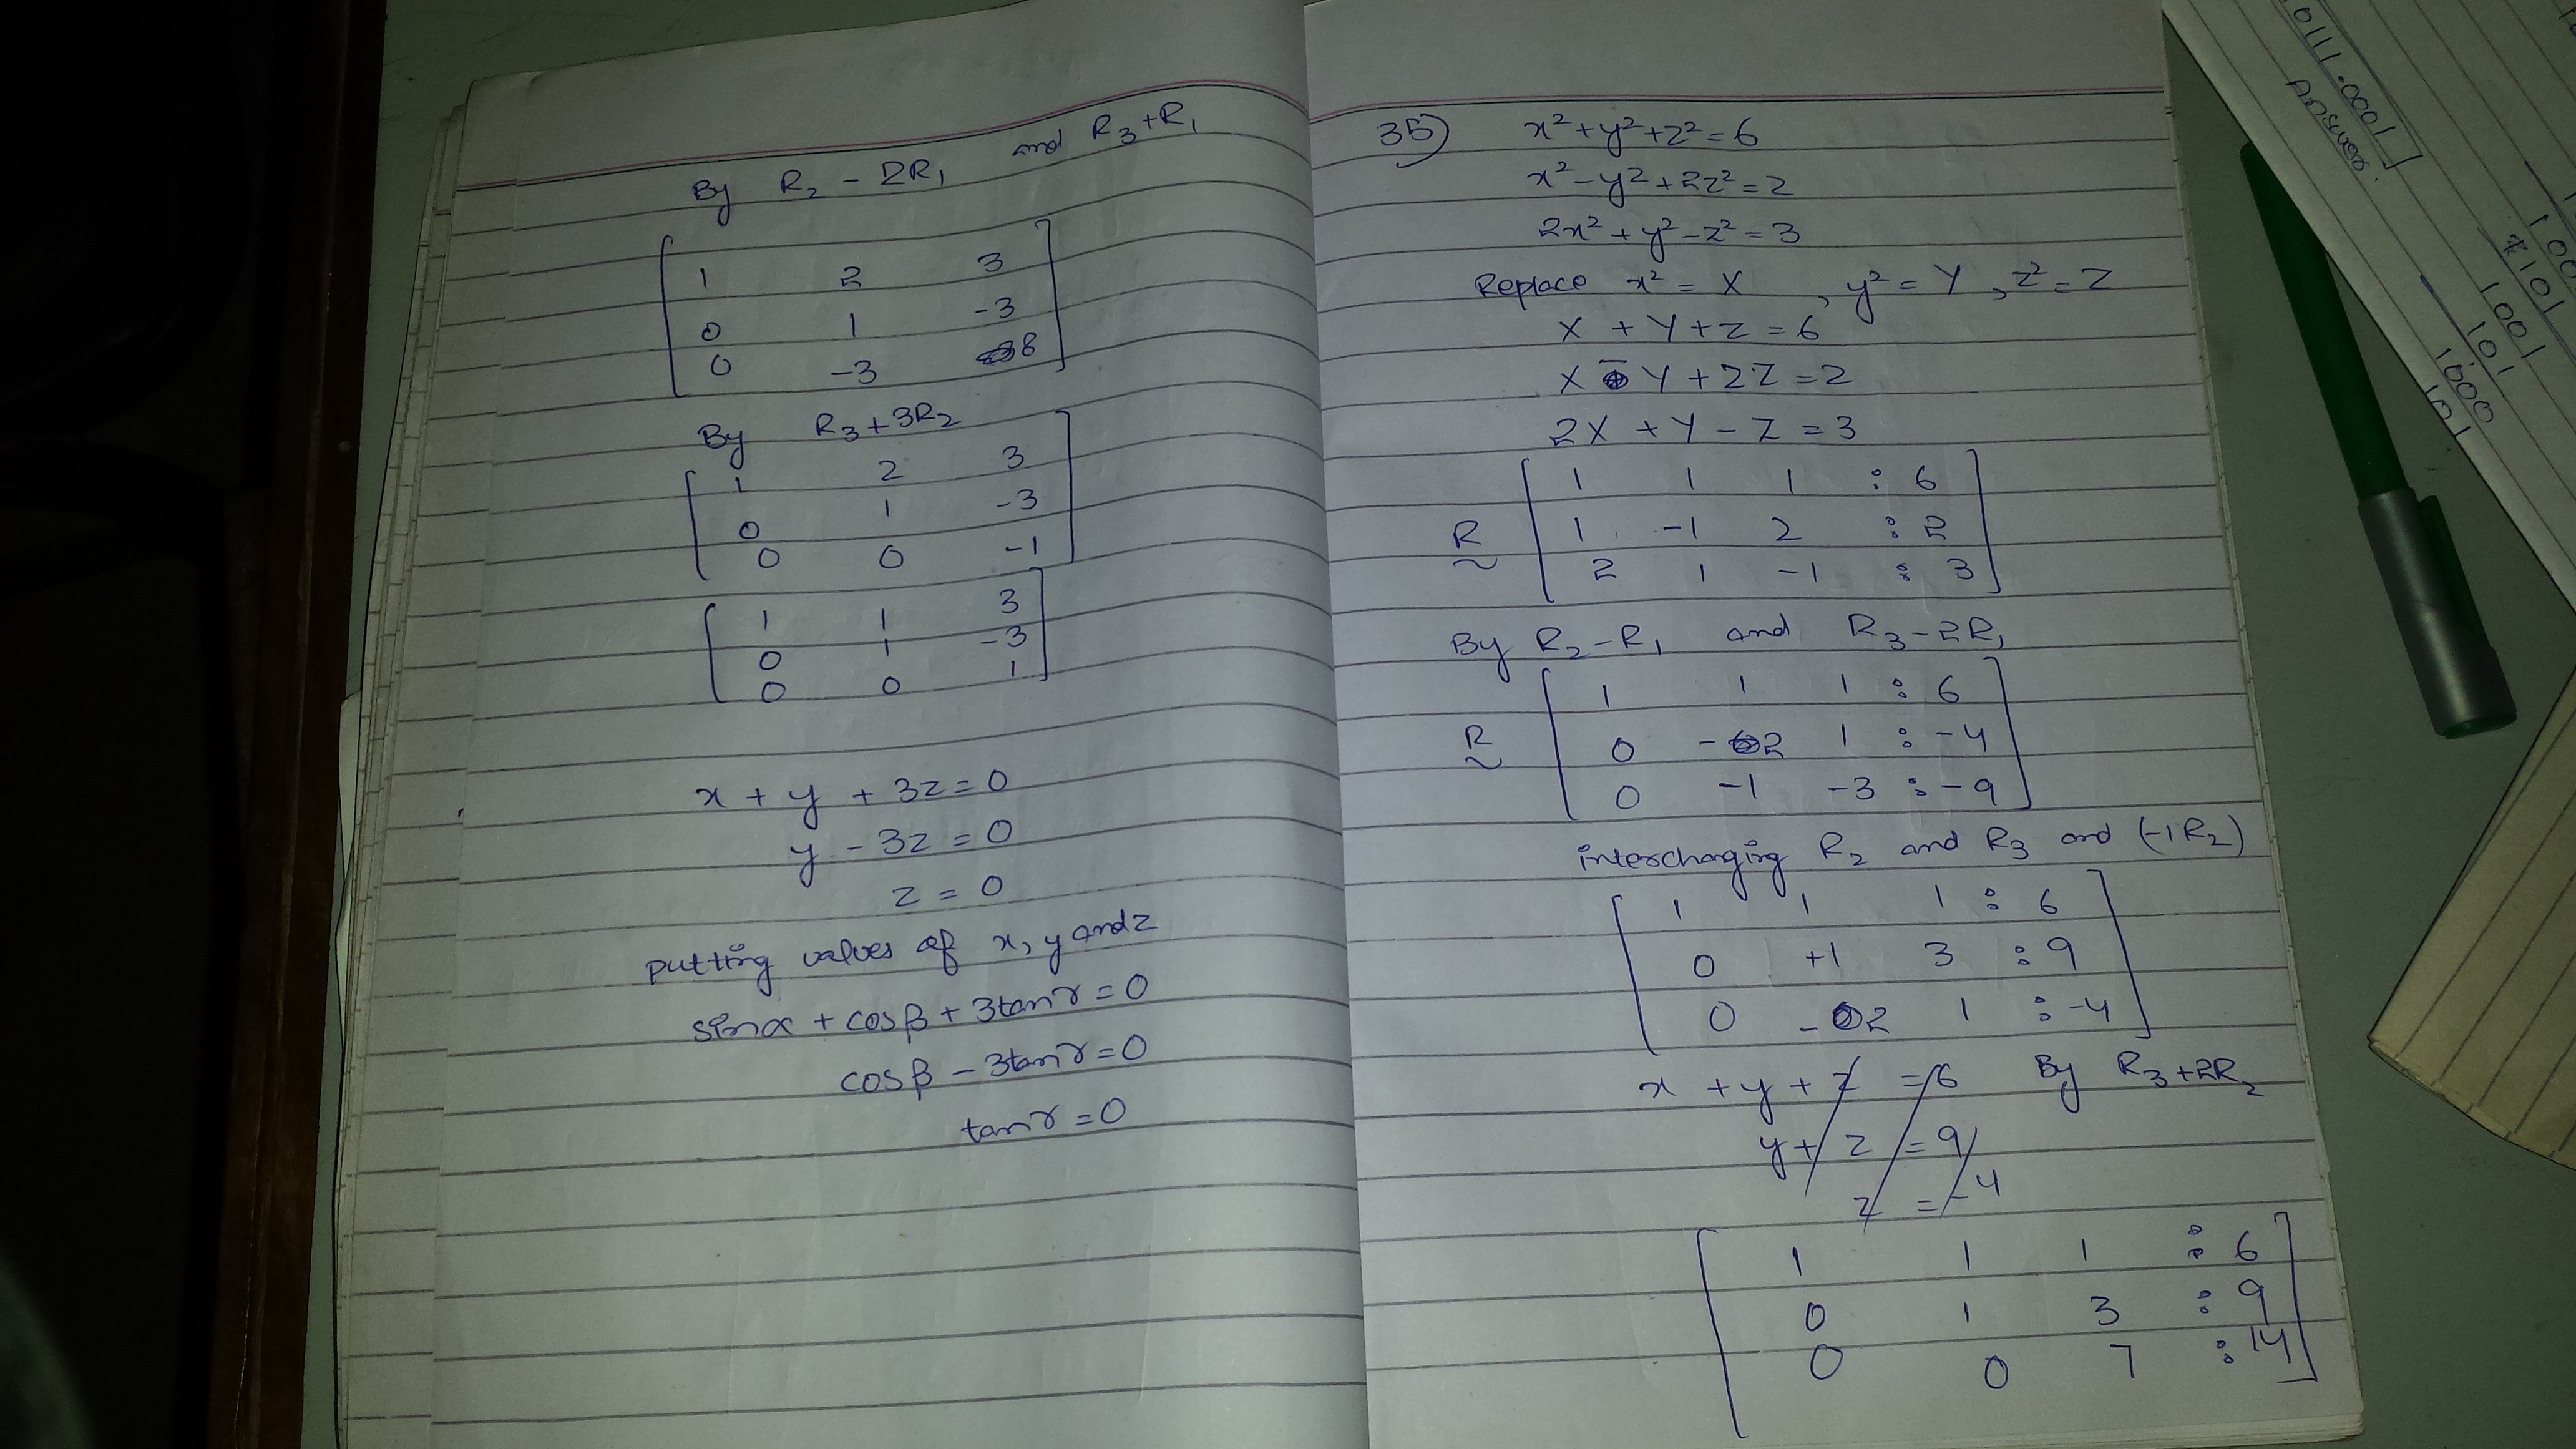 By R₂ - 2R₁ and R₃+R₁
1 2 3
0 1 -3
0 -3 8
By R₃+3R₂
1 2 3
0 1 -3
0 0 -1
1 1 3
0 1 -3
0 0 1
x + y + 3z = 0
y - 3z = 0
z = 0
putting values of x, y and z
sinα + cosβ + 3tanγ = 0
cosβ - 3tanγ = 0
tanγ = 0
35) x²+y²+z²=6
x²-y²+2z²=2
2x²+y²-z²=3
Replace x² = X , y² = Y , z² = Z
X + Y + Z = 6
X - Y + 2Z = 2
2X + Y - Z = 3
1 1 1 : 6
R ~ 1 -1 2 : 2
2 1 -1 : 3
By R₂-R₁ and R₃-2R₁
1 1 1 : 6
R ~ 0 -2 1 : -4
0 -1 -3 : -9
interchanging R₂ and R₃ and (-1R₂)
1 1 1 : 6
0 +1 3 : 9
0 -2 1 : -4
x + y + z = 6 By R₃+2R₂
y + z = 9
z = -4
1 1 1 : 6
0 1 3 : 9
0 0 7 : 14
10111.0001
Answer
1001
101
1000
101